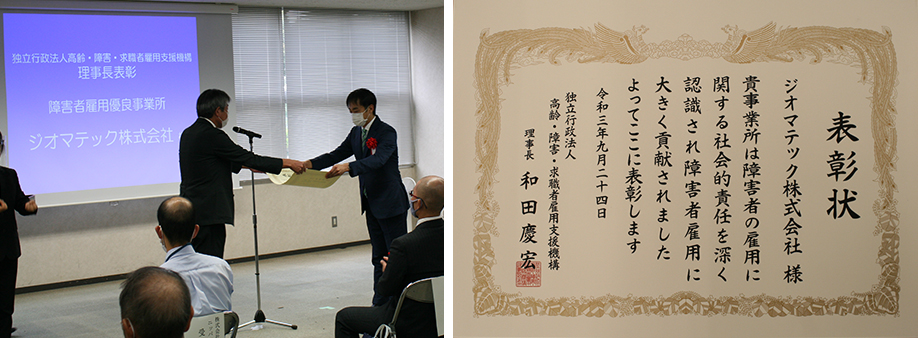 独立行政法人高齢・障害・求職者雇用支援機構
理事長表彰
障害者雇用優良事業所
ジオマテック株式会社
表彰状
ジオマテック株式会社 様
貴事業所は障害者の雇用に
関する社会的責任を深く
認識され障害者雇用に
大きく貢献されました
よってここに表彰します
令和三年九月二十四日
独立行政法人
高齢・障害・求職者雇用支援機構
理事長 和田慶宏